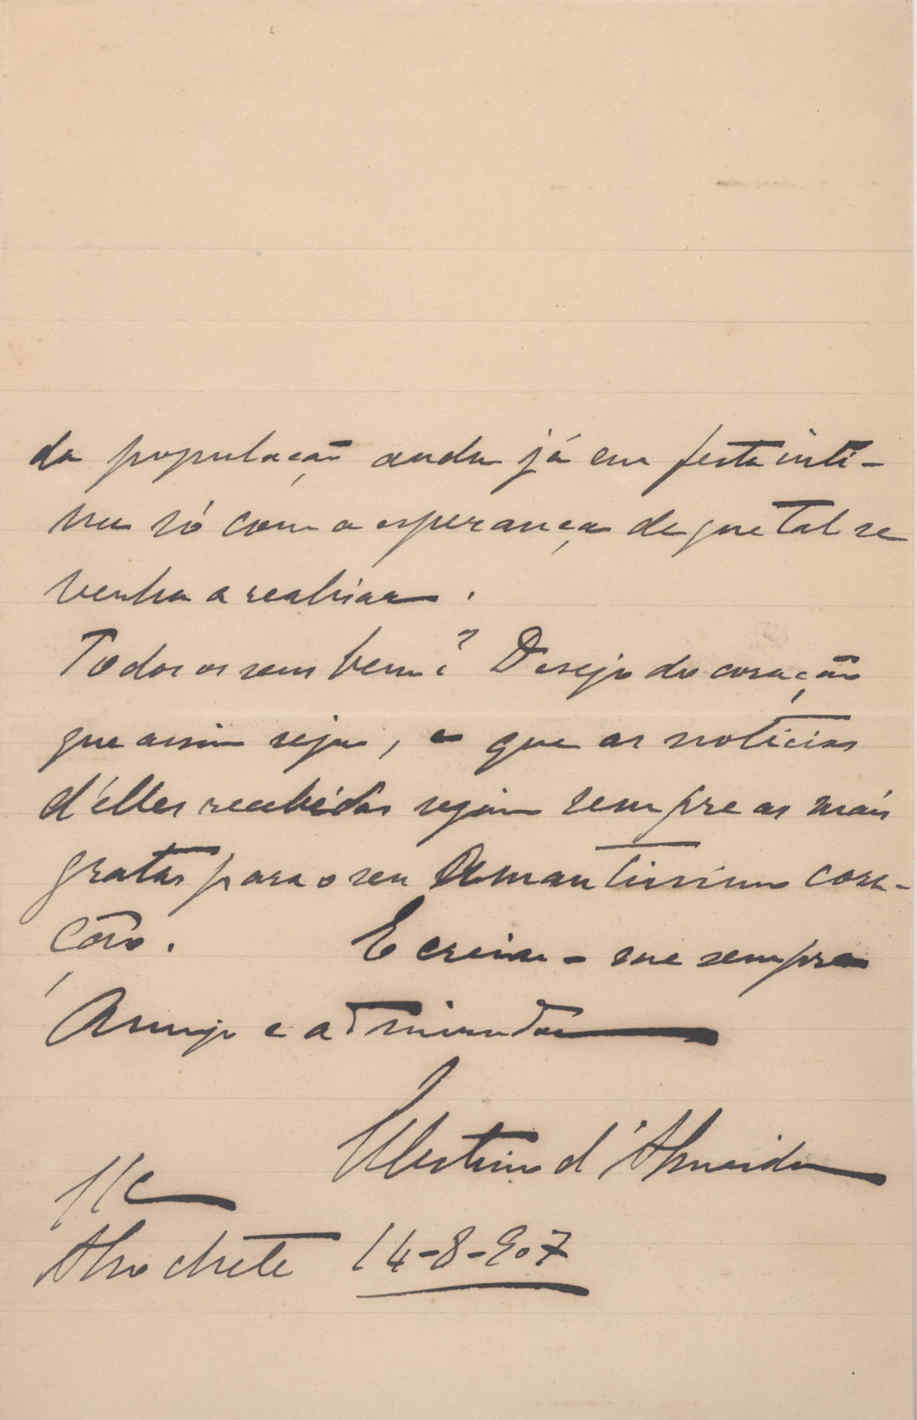 da população anda já em festa inti-
ma só com a esperança de que tal se
venha a realisar.
Todos os seus bem? Desejo do coração
que assim seja, e que as noticias
d'elles recebidas sejam sempre as mais
gratas para o seu Amantissimo cora-
ção. E creia-me sempre
Amigo e admirador
Albertino d'Almeida
S/C
Alcochete 14-8-907